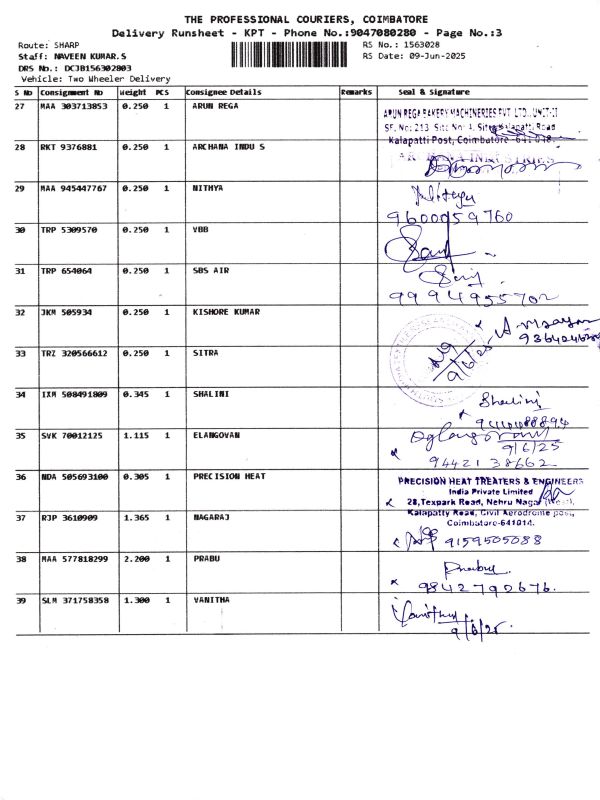 THE PROFESSIONAL COURIERS, COIMBATORE
Delivery Runsheet - KPT - Phone No.:9047080280 - Page No.:3
Route: SHARP
RS No.: 1563028
Staff: NAVEEN KUMAR.S
RS Date: 09-Jun-2025
DRS No.: DCJB156302803
Vehicle: Two Wheeler Delivery
S No Consignment No Weight PCS Consignee Details Remarks Seal & Signature
27 MAA 303713853 0.250 1 ARUN REGA
ARUN REGA BAKERY MACHINERIES PVT. LTD., UNIT-II
SF. No: 213, Site No: 4, Sitra Kalapatti Road
Kalapatti Post, Coimbatore - 641 048.
28 RKT 9376881 0.250 1 ARCHANA INDU S
INDUSTRIES
29 MAA 945447767 0.250 1 NITHYA
Nithya
9600059760
30 TRP 5309570 0.250 1 VBB
31 TRP 654064 0.250 1 SBS AIR
9994955702
32 JKM 505934 0.250 1 KISHORE KUMAR
33 TRZ 320566612 0.250 1 SITRA
9/6/25
34 IXM 508491809 0.345 1 SHALINI
Shalini
35 SVK 70012125 1.115 1 ELANGOVAN
9/6/25
9442138662
36 NDA 505693100 0.305 1 PRECISION HEAT
PRECISION HEAT TREATERS & ENGINEERS
India Private Limited
28, Texpark Road, Nehru Nagar (West),
Kalapatty Road, Civil Aerodrome post,
Coimbatore-641014.
37 RJP 3610909 1.365 1 NAGARAJ
9159505088
38 MAA 577818299 2.200 1 PRABU
Prabu
9842790676.
39 SLM 371758358 1.300 1 VANITHA
Vanitha
9/6/25